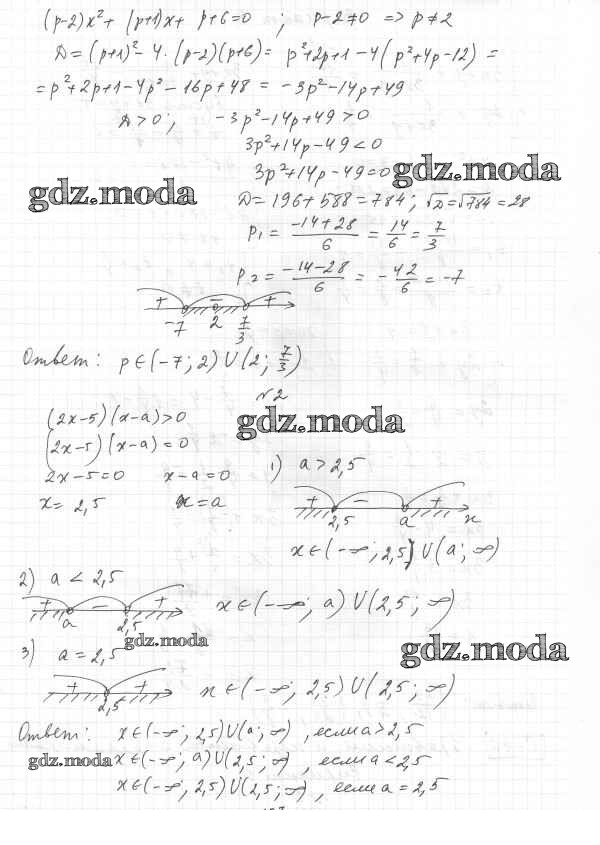 (p-2)x² + (p+1)x + p+6=0 ; p-2≠0 => p≠2
D=(p+1)²-4·(p-2)(p+6)= p²+2p+1-4(p²+4p-12) =
=p²+2p+1-4p²-16p+48 = -3p²-14p+49
D>0 ; -3p²-14p+49>0
3p²+14p-49<0
3p²+14p-49=0
gdz.moda
gdz.moda
D=196+588=784; √D=√784=28
p₁ = (-14+28)/6 = 14/6 = 7/3
p₂ = (-14-28)/6 = -42/6 = -7
+ - +
-7 2 7/3
Ответ: p∈(-7;2)∪(2; 7/3)
№2
(2x-5)(x-a)>0
gdz.moda
(2x-5)(x-a)=0
2x-5=0 x-a=0
x= 2,5 x=a
1) a>2,5
+ - +
2,5 a x
x∈(-∞; 2,5)∪(a; ∞)
2) a<2,5
+ - +
a 2,5
x∈(-∞; a)∪(2,5; ∞)
gdz.moda
3) a=2,5
gdz.moda
+ +
2,5
x∈(-∞; 2,5)∪(2,5; ∞)
Ответ: x∈(-∞; 2,5)∪(a; ∞), если a>2,5
gdz.moda
x∈(-∞; a)∪(2,5; ∞), если a<2,5
x∈(-∞; 2,5)∪(2,5; ∞), если a=2,5